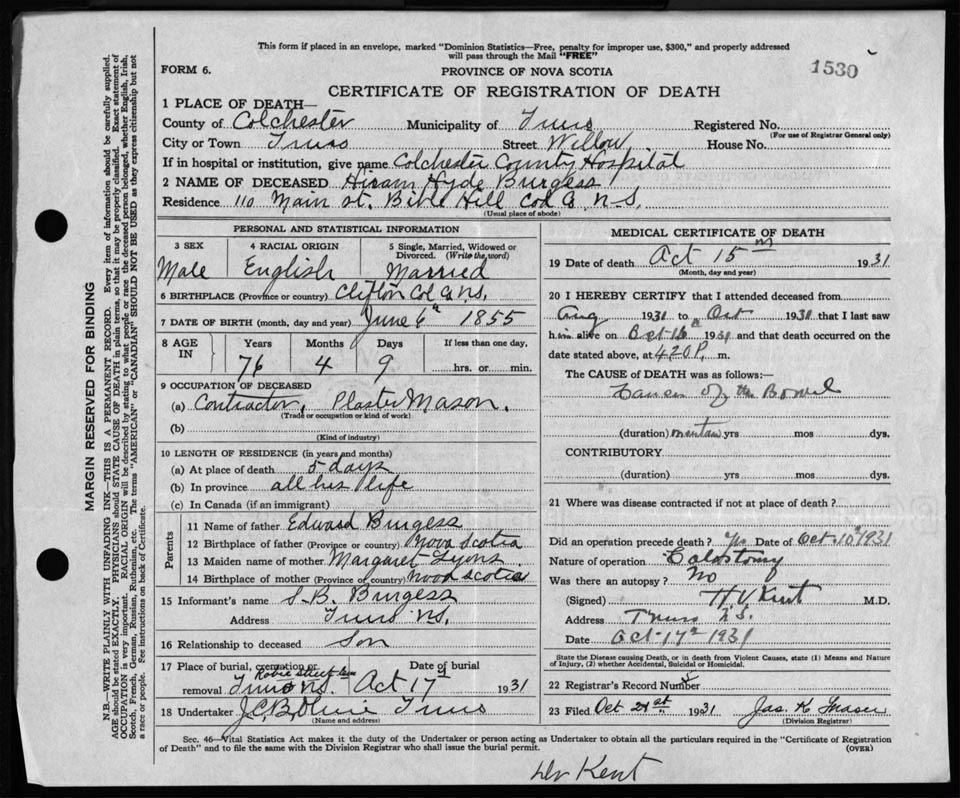 This form if placed in an envelope, marked "Dominion Statistics—Free, penalty for improper use, $300," and properly addressed
will pass through the Mail "FREE"
1530
FORM 6.
PROVINCE OF NOVA SCOTIA
CERTIFICATE OF REGISTRATION OF DEATH
MARGIN RESERVED FOR BINDING
N.B.—WRITE PLAINLY WITH UNFADING INK—THIS IS A PERMANENT RECORD. Every item of information should be carefully supplied.
AGE should be stated EXACTLY. PHYSICIANS should STATE CAUSE OF DEATH in plain terms, so that it may be properly classified. Exact statement of
OCCUPATION is very important. RACIAL ORIGIN will be described by stating to what people or race the deceased person belonged, whether English, Irish,
Scotch, French, German, Russian, Ruthenian, etc. The terms "AMERICAN" or "CANADIAN" SHOULD NOT BE USED as they express citizenship but not
a race or people. Fee instructions on back of Certificate.
1 PLACE OF DEATH—
County of Colchester Municipality of Truro Registered No.
(For use of Registrar General only)
City or Town Truro Street Willow House No.
If in hospital or institution, give name Colchester County Hospital
2 NAME OF DECEASED Hiram Hyde Burgess
Residence 110 Main St. Bible Hill Col Co. N-S.
(Usual place of abode)
PERSONAL AND STATISTICAL INFORMATION
3 SEX
Male
4 RACIAL ORIGIN
English
5 Single, Married, Widowed or
Divorced. (Write the word)
Married
6 BIRTHPLACE (Province or country) Clifton Col Co N.S.
7 DATE OF BIRTH (month, day and year) June 6th 1855
8 AGE
IN
Years Months Days If less than one day.
76 4 9 hrs. or min.
9 OCCUPATION OF DECEASED
(a) Contractor, Plaster Mason.
(Trade or occupation or kind of work)
(b)
(Kind of industry)
10 LENGTH OF RESIDENCE (in years and months)
(a) At place of death 5 days
(b) In province all his life
(c) In Canada (if an immigrant)
Parents
11 Name of father Edward Burgess
12 Birthplace of father (Province or country) Nova Scotia
13 Maiden name of mother Margaret Lyons
14 Birthplace of mother (Province or country) Nova Scotia
15 Informant's name S. B. Burgess
Address Truro N.S.
16 Relationship to deceased Son
17 Place of burial, cremation or Date of burial
Robie Street Cem
removal Truro N.S. Oct 17 1931
18 Undertaker Truro
(Name and address)
MEDICAL CERTIFICATE OF DEATH
19 Date of death Oct 15th 1931
(Month, day and year)
20 I HEREBY CERTIFY that I attended deceased from
Aug 1931 to Oct 1931 that I last saw
him alive on Oct 1931 and that death occurred on the
date stated above, at 4.20 P. m.
The CAUSE of DEATH was as follows:—
Cancer of the Bowel
(duration) yrs mos dys.
CONTRIBUTORY
(duration) yrs mos dys.
21 Where was disease contracted if not at place of death?
Did an operation precede death? Yes Date of Oct 10th 1931
Nature of operation Colostomy
Was there an autopsy? No
(Signed) H V Kent M.D.
Address Truro N.S.
Date Oct 17th 1931
State the Disease causing Death, or in death from Violent Causes, state (1) Means and Nature
of Injury, (2) whether Accidental, Suicidal or Homicidal.
22 Registrar's Record Number
23 Filed Oct 21st 1931 Jas. K Fraser
(Division Registrar)
Sec. 46—Vital Statistics Act makes it the duty of the Undertaker or person acting as Undertaker to obtain all the particulars required in the "Certificate of Registration
of Death" and to file the same with the Division Registrar who shall issue the burial permit. (OVER)
Dr Kent